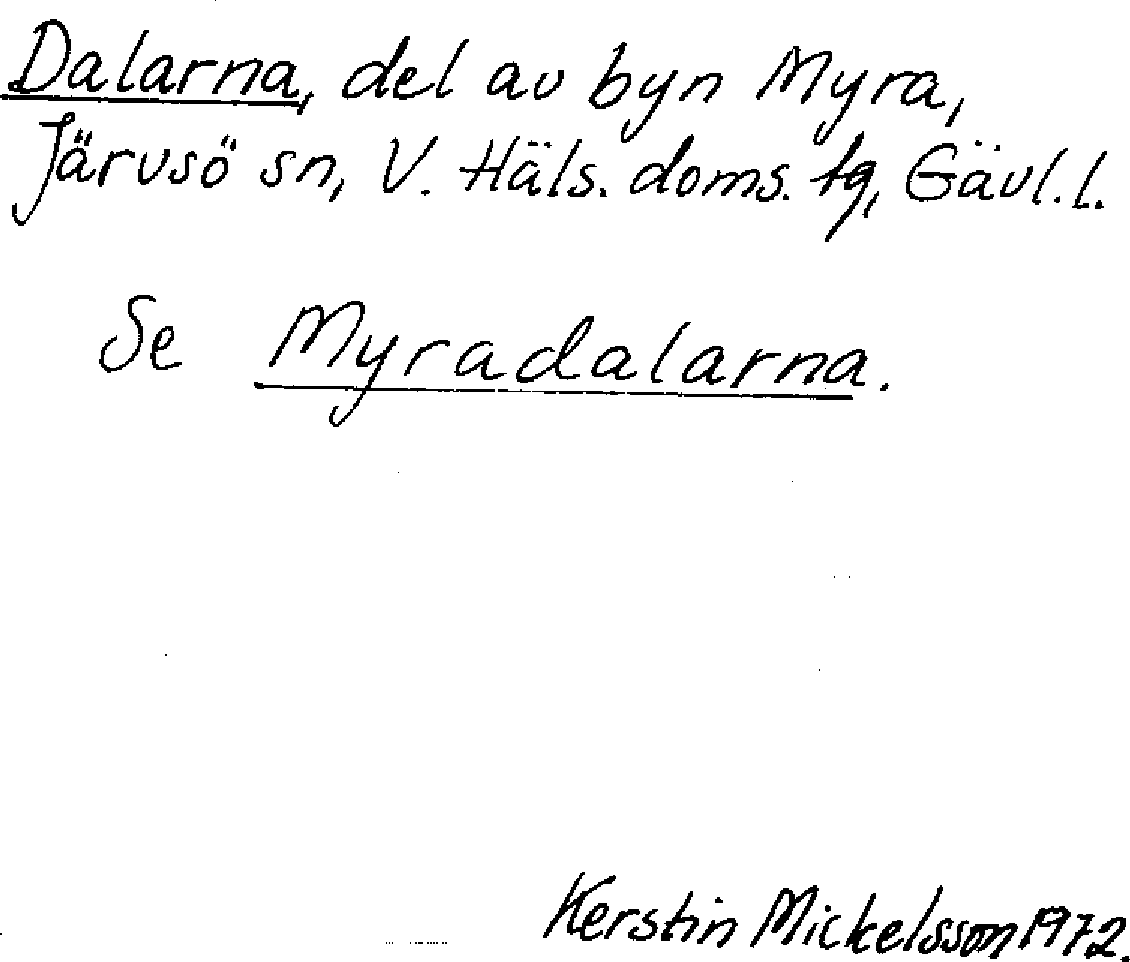 Dalarna, del av byn Myra,
Järvsö sn, V. Häls. doms. tg, Gävl. l.
Se Myradalarna.
Kerstin Mickelsson 1972.